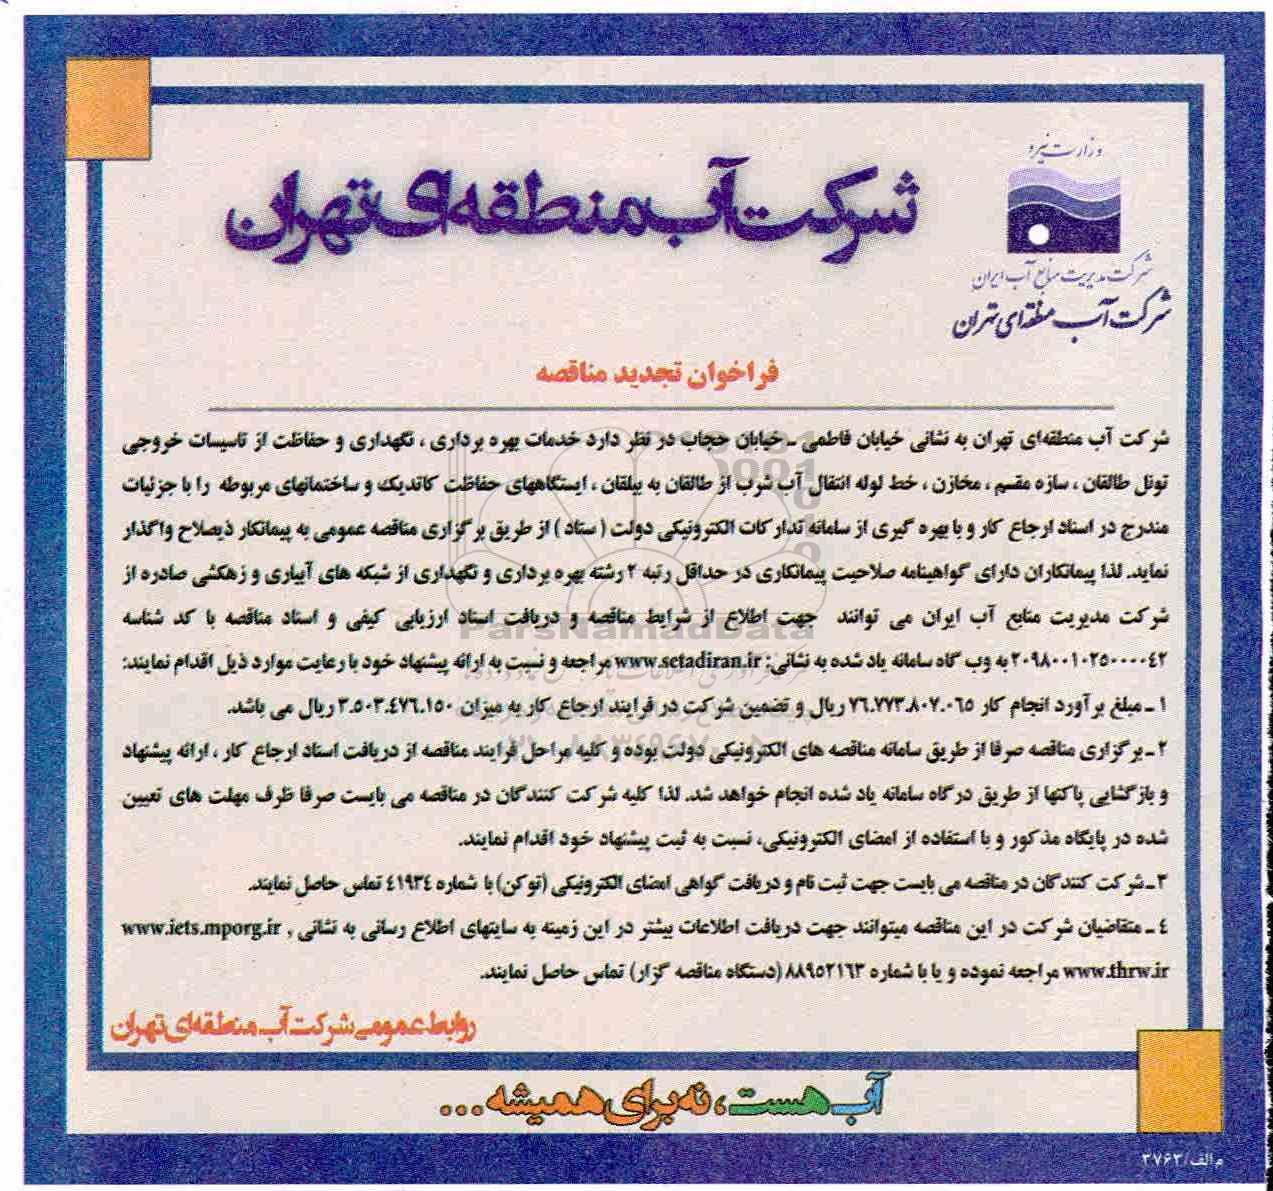 وزارت نیرو
شرکت مدیریت منابع آب ایران
شرکت آب منطقه‌ای تهران
شرکت آب منطقه‌ای تهران
فراخوان تجدید مناقصه
شرکت آب منطقه‌ای تهران به نشانی خیابان فاطمی ـ خیابان حجاب در نظر دارد خدمات بهره برداری ، نگهداری و حفاظت از تاسیسات خروجی
تونل طالقان ، سازه مقسم ، مخازن ، خط لوله انتقال آب شرب از طالقان به بیلقان ، ایستگاههای حفاظت کاتدیک و ساختمانهای مربوطه را با جزئیات
مندرج در اسناد ارجاع کار و با بهره گیری از سامانه تدارکات الکترونیکی دولت ( ستاد ) از طریق برگزاری مناقصه عمومی به پیمانکار ذیصلاح واگذار
نماید. لذا پیمانکاران دارای گواهینامه صلاحیت پیمانکاری در حداقل رتبه ۲ رشته بهره برداری و نگهداری از شبکه های آبیاری و زهکشی صادره از
شرکت مدیریت منابع آب ایران می توانند جهت اطلاع از شرایط مناقصه و دریافت اسناد ارزیابی کیفی و اسناد مناقصه با کد شناسه
۲۰۹۸۰۰۱۰۲۵۰۰۰۰۴۲ به وب گاه سامانه یاد شده به نشانی: www.setadiran.ir مراجعه و نسبت به ارائه پیشنهاد خود با رعایت موارد ذیل اقدام نمایند:
۱ ـ مبلغ برآورد انجام کار ۷۶.۷۷۳.۸۰۷.۰۶۵ ریال و تضمین شرکت در فرایند ارجاع کار به میزان ۳.۵۰۳.۴۷۶.۱۵۰ ریال می باشد.
۲ ـ برگزاری مناقصه صرفا از طریق سامانه مناقصه های الکترونیکی دولت بوده و کلیه مراحل فرایند مناقصه از دریافت اسناد ارجاع کار ، ارائه پیشنهاد
و بازگشایی پاکتها از طریق درگاه سامانه یاد شده انجام خواهد شد. لذا کلیه شرکت کنندگان در مناقصه می بایست صرفا ظرف مهلت های تعیین
شده در پایگاه مذکور و با استفاده از امضای الکترونیکی، نسبت به ثبت پیشنهاد خود اقدام نمایند.
۳ ـ شرکت کنندگان در مناقصه می بایست جهت ثبت نام و دریافت گواهی امضای الکترونیکی (توکن) با شماره ۴۱۹۳۴ تماس حاصل نمایند.
۴ ـ متقاضیان شرکت در این مناقصه میتوانند جهت دریافت اطلاعات بیشتر در این زمینه به سایتهای اطلاع رسانی به نشانی , www.iets.mporg.ir
www.thrw.ir مراجعه نموده و یا با شماره ۸۸۹۵۲۱۶۳ (دستگاه مناقصه گزار) تماس حاصل نمایند.
روابط عمومی شرکت آب منطقه‌ای تهران
آب هست، نه برای همیشه...
م الف/۳۷۶۳
ParsNamadData